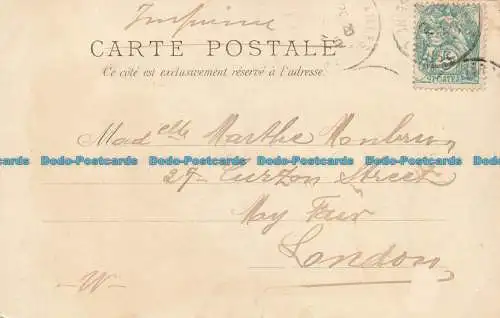 Imprimé
CARTE POSTALE
Ce côté est exclusivement réservé à l'adresse.
Mad elle Marthe
Dodo-Postcards Dodo-Postcards Dodo-Postcards Dodo-Postcards Dodo-Postcards Dodo-Postcards
27 Curzon Street
May Fair
London
W